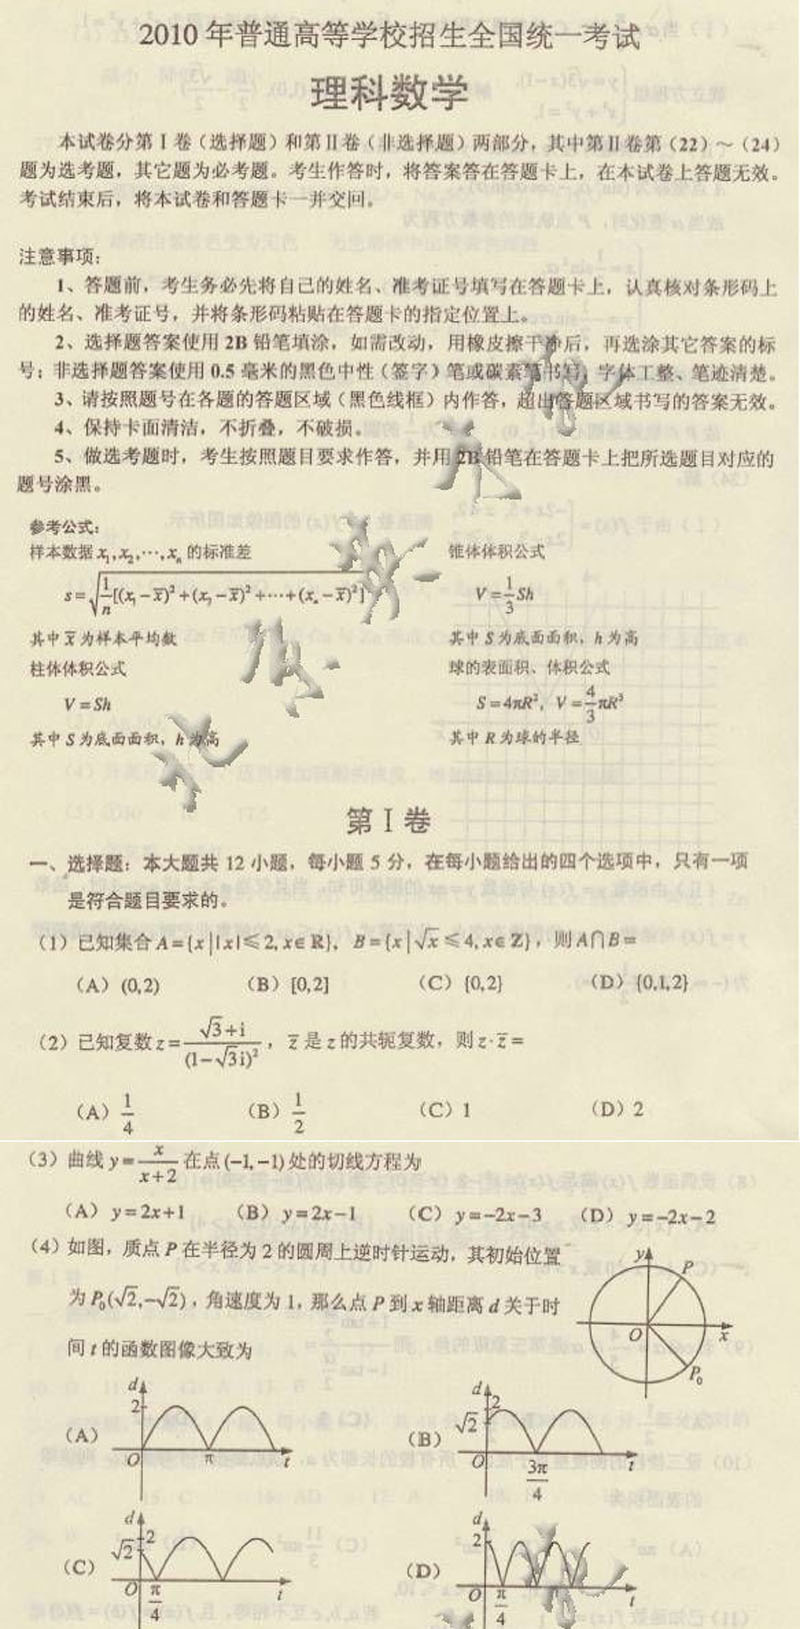 2010 年普通高等学校招生全国统一考试
理科数学
本试卷分第 I 卷（选择题）和第 II 卷（非选择题）两部分，其中第 II 卷第（22）～（24）
题为选考题，其它题为必考题。考生作答时，将答案答在答题卡上，在本试卷上答题无效。
考试结束后，将本试卷和答题卡一并交回。
注意事项：
1、答题前，考生务必先将自己的姓名、准考证号填写在答题卡上，认真核对条形码上
的姓名、准考证号，并将条形码粘贴在答题卡的指定位置上。
2、选择题答案使用 2B 铅笔填涂，如需改动，用橡皮擦干净后，再选涂其它答案的标
号；非选择题答案使用 0.5 毫米的黑色中性（签字）笔或碳素笔书写，字体工整、笔迹清楚。
3、请按照题号在各题的答题区域（黑色线框）内作答，超出答题区域书写的答案无效。
4、保持卡面清洁，不折叠，不破损。
5、做选考题时，考生按照题目要求作答，并用 2B 铅笔在答题卡上把所选题目对应的
题号涂黑。
参考公式：
样本数据 x₁,x₂,⋯,xₙ 的标准差 锥体体积公式
s=√(1/n[(x₁−x̄)²+(x₂−x̄)²+⋯+(xₙ−x̄)²]) V=1/3 Sh
其中 x̄ 为样本平均数 其中 S 为底面面积，h 为高
柱体体积公式 球的表面积、体积公式
V=Sh S=4πR²，V=4/3 πR³
其中 S 为底面面积，h 为高 其中 R 为球的半径
第 I 卷
一、选择题：本大题共 12 小题，每小题 5 分，在每小题给出的四个选项中，只有一项
是符合题目要求的。
（1）已知集合 A={x||x|≤2, x∈R}，B={x|√x≤4, x∈Z}，则 A∩B=
（A）(0,2) （B）[0,2] （C）{0,2} （D）{0,1,2}
（2）已知复数 z=(√3+i)/(1−√3i)²，z̄ 是 z 的共轭复数，则 z·z̄=
（A）1/4 （B）1/2 （C）1 （D）2
（3）曲线 y=x/(x+2) 在点 (−1,−1) 处的切线方程为
（A）y=2x+1 （B）y=2x−1 （C）y=−2x−3 （D）y=−2x−2
（4）如图，质点 P 在半径为 2 的圆周上逆时针运动，其初始位置
为 P₀(√2,−√2)，角速度为 1，那么点 P 到 x 轴距离 d 关于时
间 t 的函数图像大致为
y P O x P₀
（A） d 2 O π t
（B） d 2 √2 O 3π/4 t
（C） d 2 √2 O π/4 t
（D） d 2 O π/4 t